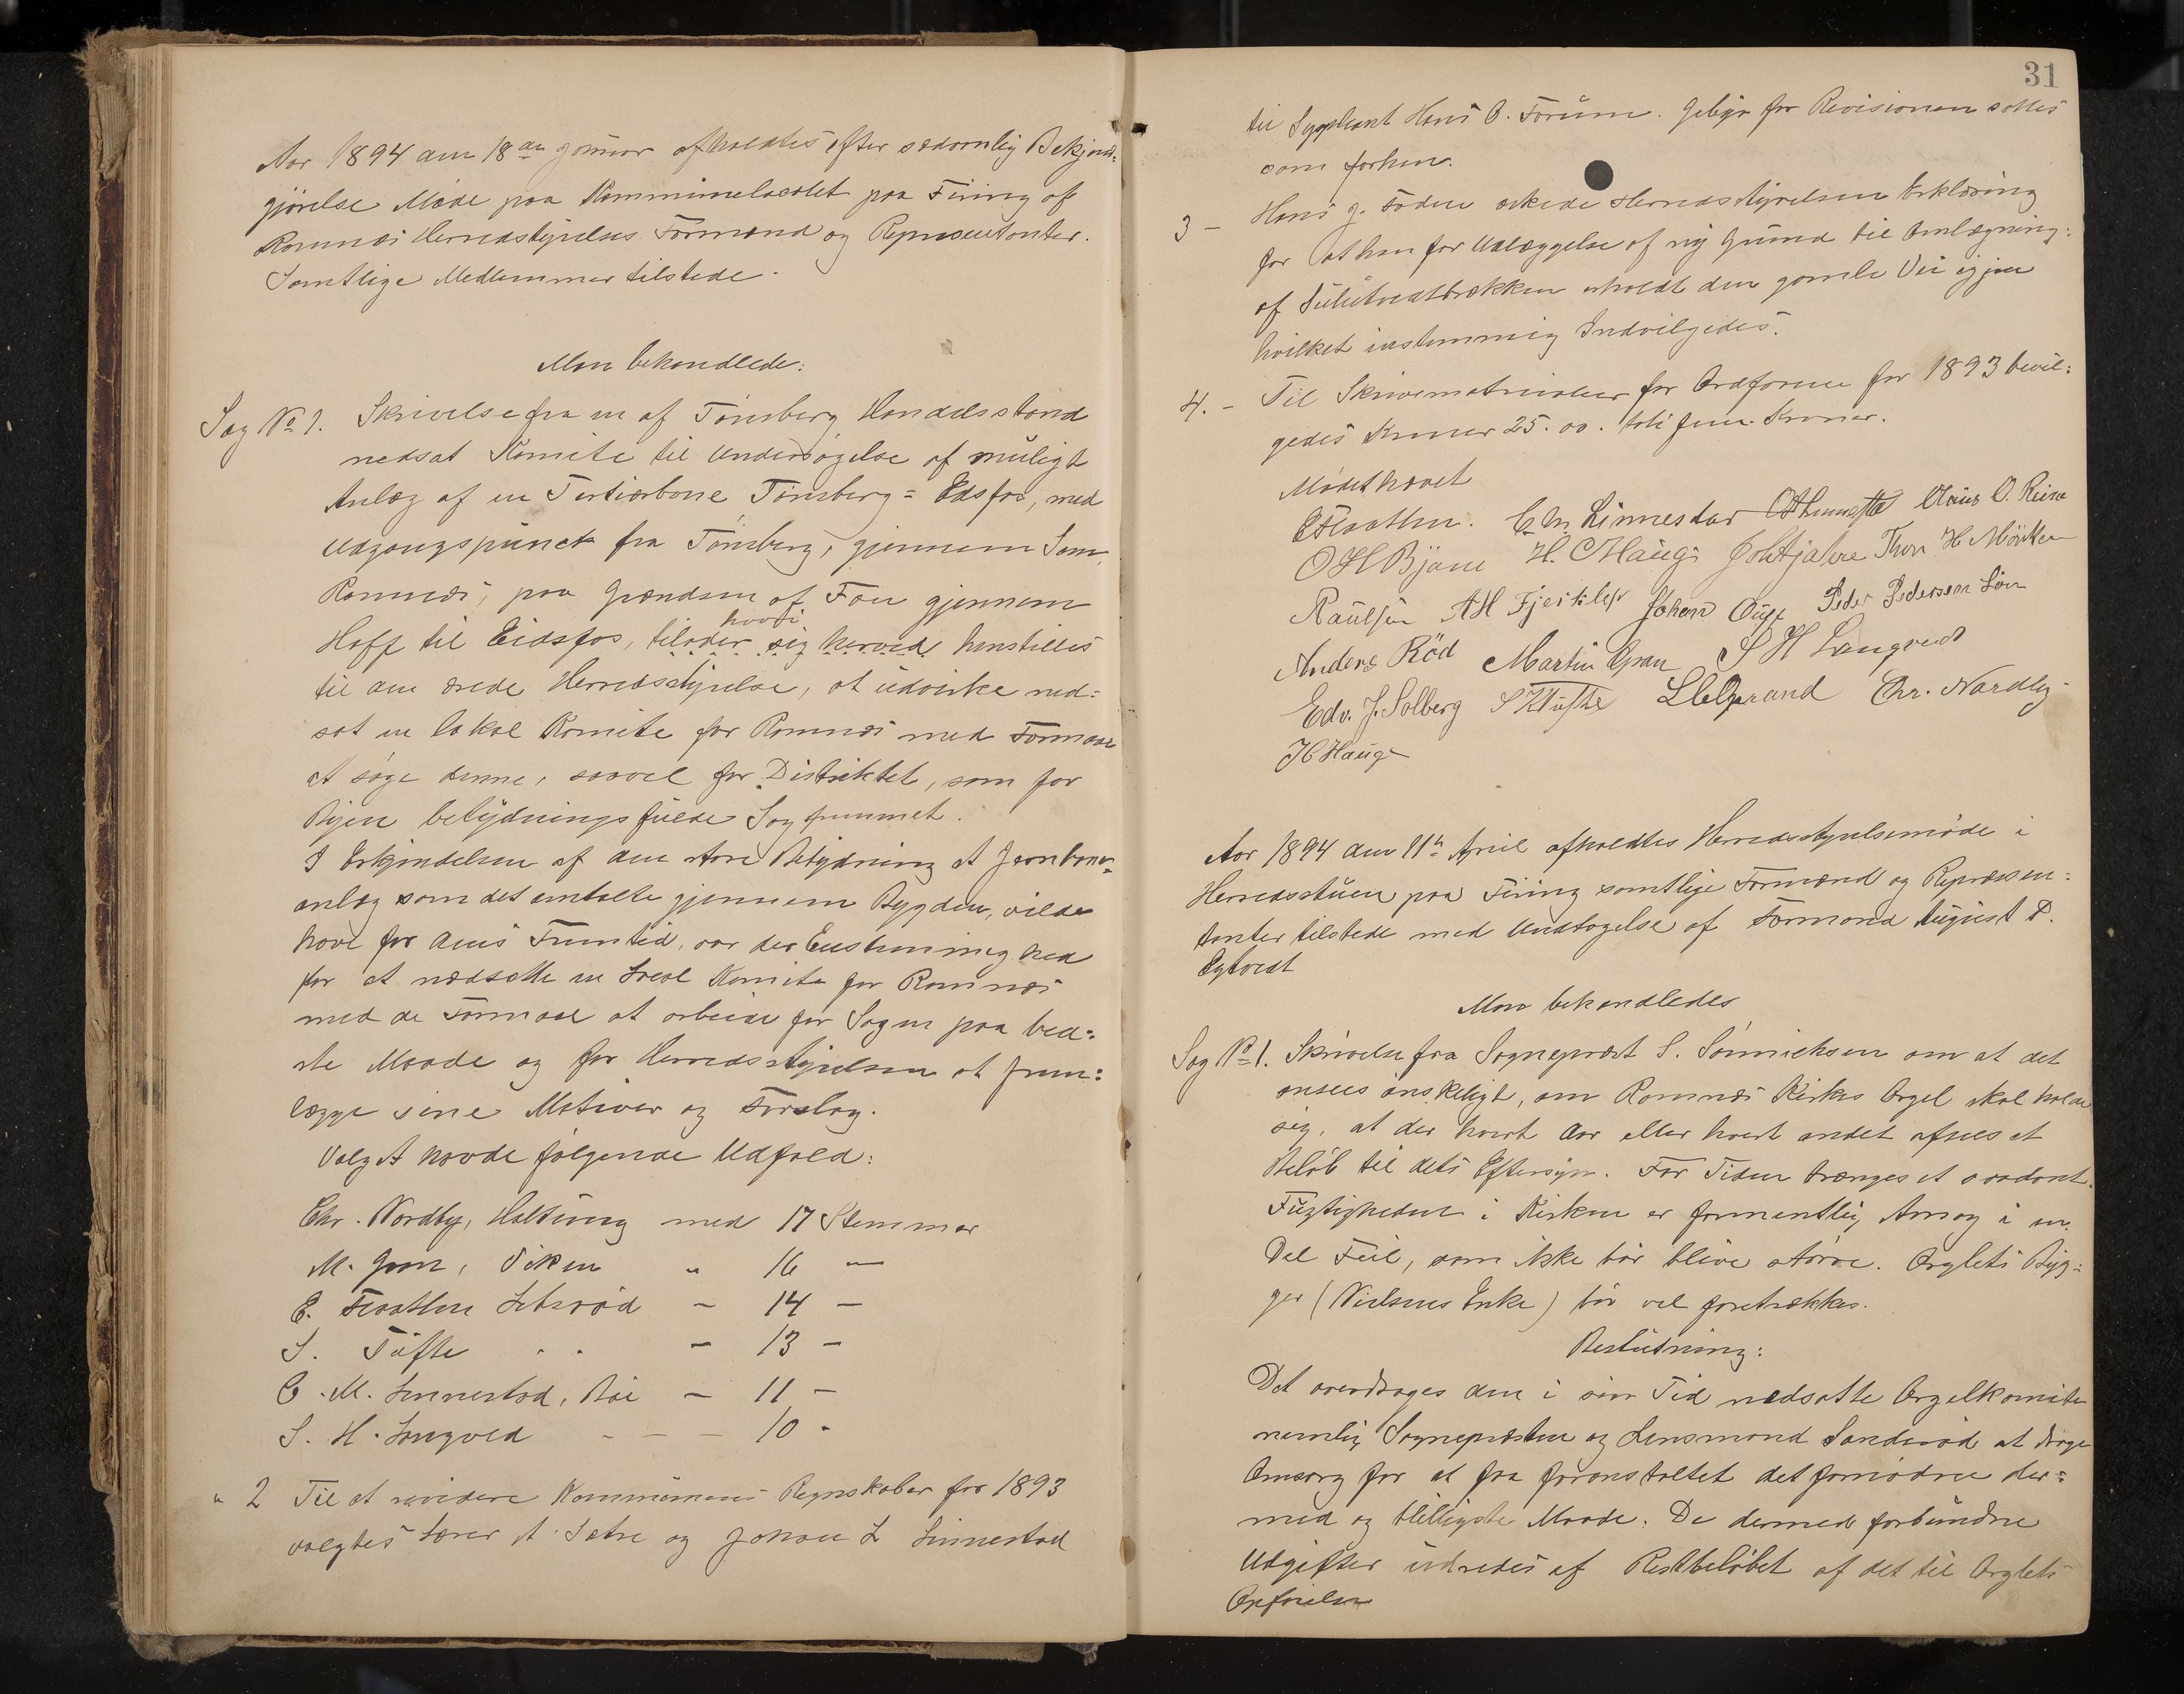 Aar 1894 den 18de Januar afholdtes efter sædvanlig Bekjend-
gjörelse Möde paa Kommunelocalet paa Firing af
Ramnæs Herredsstyrelses Formænd og Repræsentanter.
Samtlige Medlemmer tilstede.
Man behandlede:
Sag No 1. Skrivelse fra en af Tönsberg Handelsstand
nedsat Komite til Undersögelse af muligt
Anlæg af en Tertiærbane Tönsberg = Edsfos, med
Udgangspunct fra Tönsberg, gjennem Sem,
Ramnæs, paa Grændsen af Fon gjennem
Hoff til Eidsfos, tilader sig herved henstilles
til den ærede Herredsstyrelse, at udvirke ned=
sat en lokal Komite for Ramnæs med Formaal
at söge denne, saavel for Distriktet, som for
Byen betydningsfulde Sag fremmet.
I Erkjendelsen af den store Betydning et Jernbane=
anlæg som det omtalte gjennem Bygden, vilde
have for dens Fremtid, var der Enstemmighed
for at nedsætte en Local Komite for Ramnæs
med de Formaal at arbeide for Sagen paa bed=
ste Maade og for Herredsstyrelsen at frem=
lægge sine Motiver og Forslag.
Valget havde fölgende Udfald:
Chr. Nordby, Haltung med 17 Stemmer
M. Gran, Viken " 16 —
E. Floatten Sebuöd — 14 —
S. Tufte . . — 13 —
C. M. Linnestad, Böe — 11 —
S. H. Langved - — — 10 -
" 2 Til at revidere Kommunens Regnskaber for 1893
valgtes Lærer A. Sætre og Johan L Linnestad
31
til Supleant Hans O. Forum. Gebyr for Revisionen sættes
som forhen.
3 - Hans J. Föden æskede Herredsstyrelsens Erklæring
for at han for Udlæggelse af ny Grund til Omlægning
af vedtrækken erholdt den gamle Vei igjen
hvilket enstemmig Indvilgedes.
4. - Til Skrivematrialier for Ordföreren for 1893 bevil=
gedes Kroner 25.00. toti fem Kroner.
Mödet hævet
E Floatten. C. M. Linnestad Olaus O. Reine
O H Bjane H. C Haug Thor H Mörken
Paulsen A H Johan Peder Pedersen
Anders Röd Martin Gran S H Langvedt
Edv. J. Solberg S K Tufte Chr. Nordby
H Hauge
Aar 1894 den 11te April afholdtes Herredsstyrelsemöde i
Herredsstuen paa Firing samtlige Formænd og Repræsen=
tanter tilstede med Undtagelse af Formand August P.
Man behandledes
Sag No 1. Skrivelse fra Sogneprest S. Sönnichsen om at det
ansees önskeligt, om Ramnæs Kirkes Orgel skal holde
sig, at der hvert Aar eller hvert andet afsees et
Belöb til dets Eftersyn. For Tiden trænges et saadant.
Fugtigheden i Kirken er formentlig Aarsag i en
Del Feil, som ikke bör blive större. Orglets Byg=
ger (Nielsens Enke) bör vel foretrækkes.
Beslutning:
Det overdrages den i sin Tid nedsatte Orgelkomite
nemlig Sognepresten og Lensmand Sanderöd at drage
Omsorg for at faa foranstaltet det fornödne der=
med og billigste Maade. De dermed forbundne
Udgifter udredes af Restbelöbet af det til Orglets
Opförelse